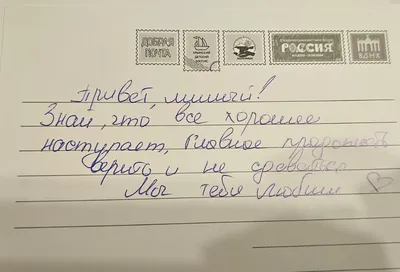 ДОБРАЯ ПОЧТА
РОССИЯ
ВДНХ
Привет, милый!
Знай, что все хорошее
наступает, Главное продолжать
верить и не сдаваться
Мы тебя любим